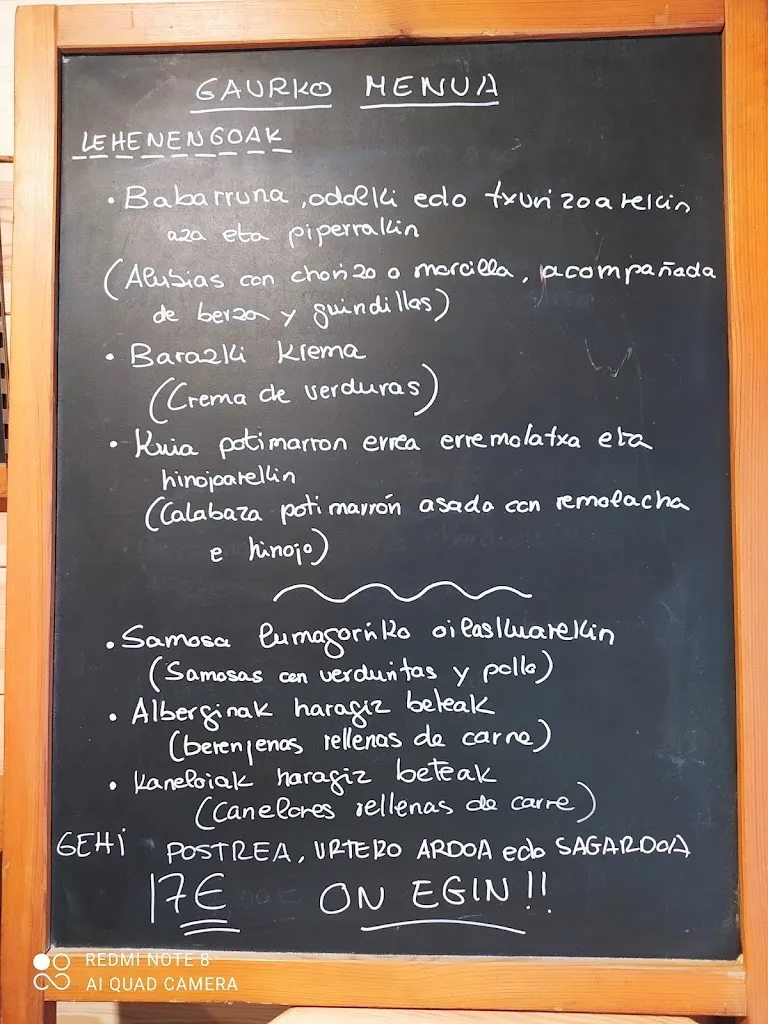 GAURKO MENUA
LEHENENGOAK
• Babarruna, odolki edo txurizoarekin
aza eta piperrakin
(Alubias con chorizo o morcilla, acompañada
de berza y guindillas)
• Barazki krema
(Crema de verduras)
• Kuia potimarron errea erremolatxa eta
hinojoarekin
(Calabaza potimarrón asada con remolacha
e hinojo)
• Samosa lumagorriko oilaskuarekin
(Samosas con verduritas y pollo)
• Alberginak haragiz beteak
(berenjenas rellenas de carne)
• Kaneloiak haragiz beteak
(Canelones rellenas de carne)
GEHI POSTREA, URTEKO ARDOA edo SAGARDOA
17€ ON EGIN!!
REDMI NOTE 8
AI QUAD CAMERA